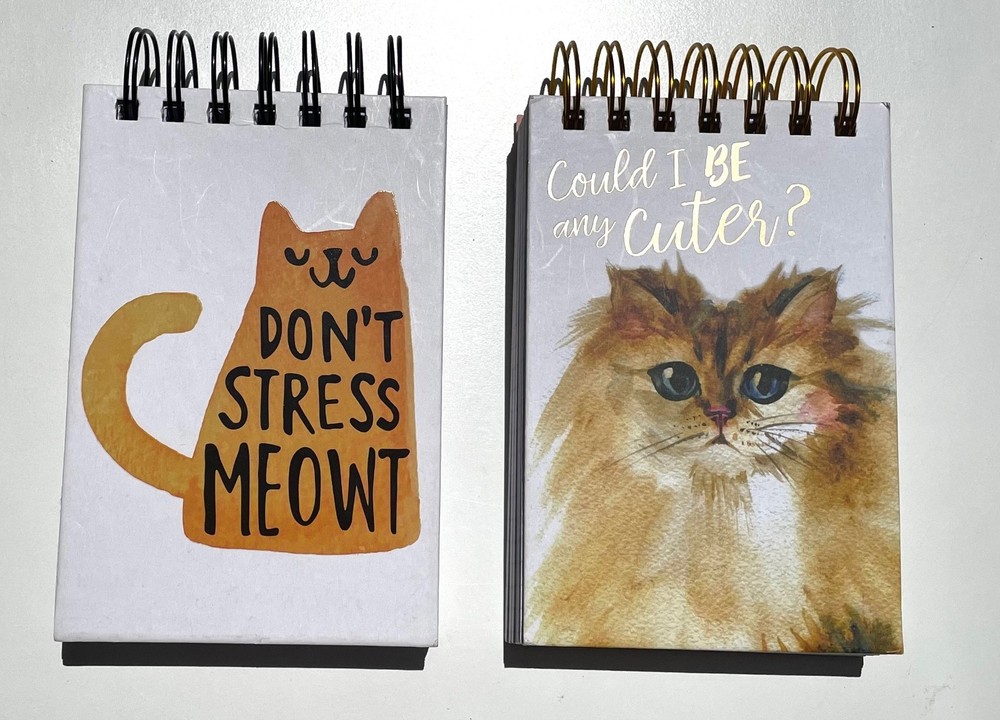 DON'T
STRESS
MEOWT
Could I BE
any Cuter?